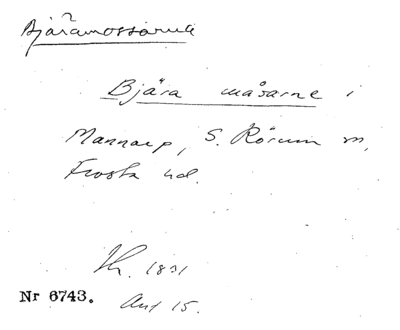 Bjäramossarne
Bjära måsarne i
Mannarp, S. Rörum m,
Frosta hd.
1831
Nr 6743. Akt 15.